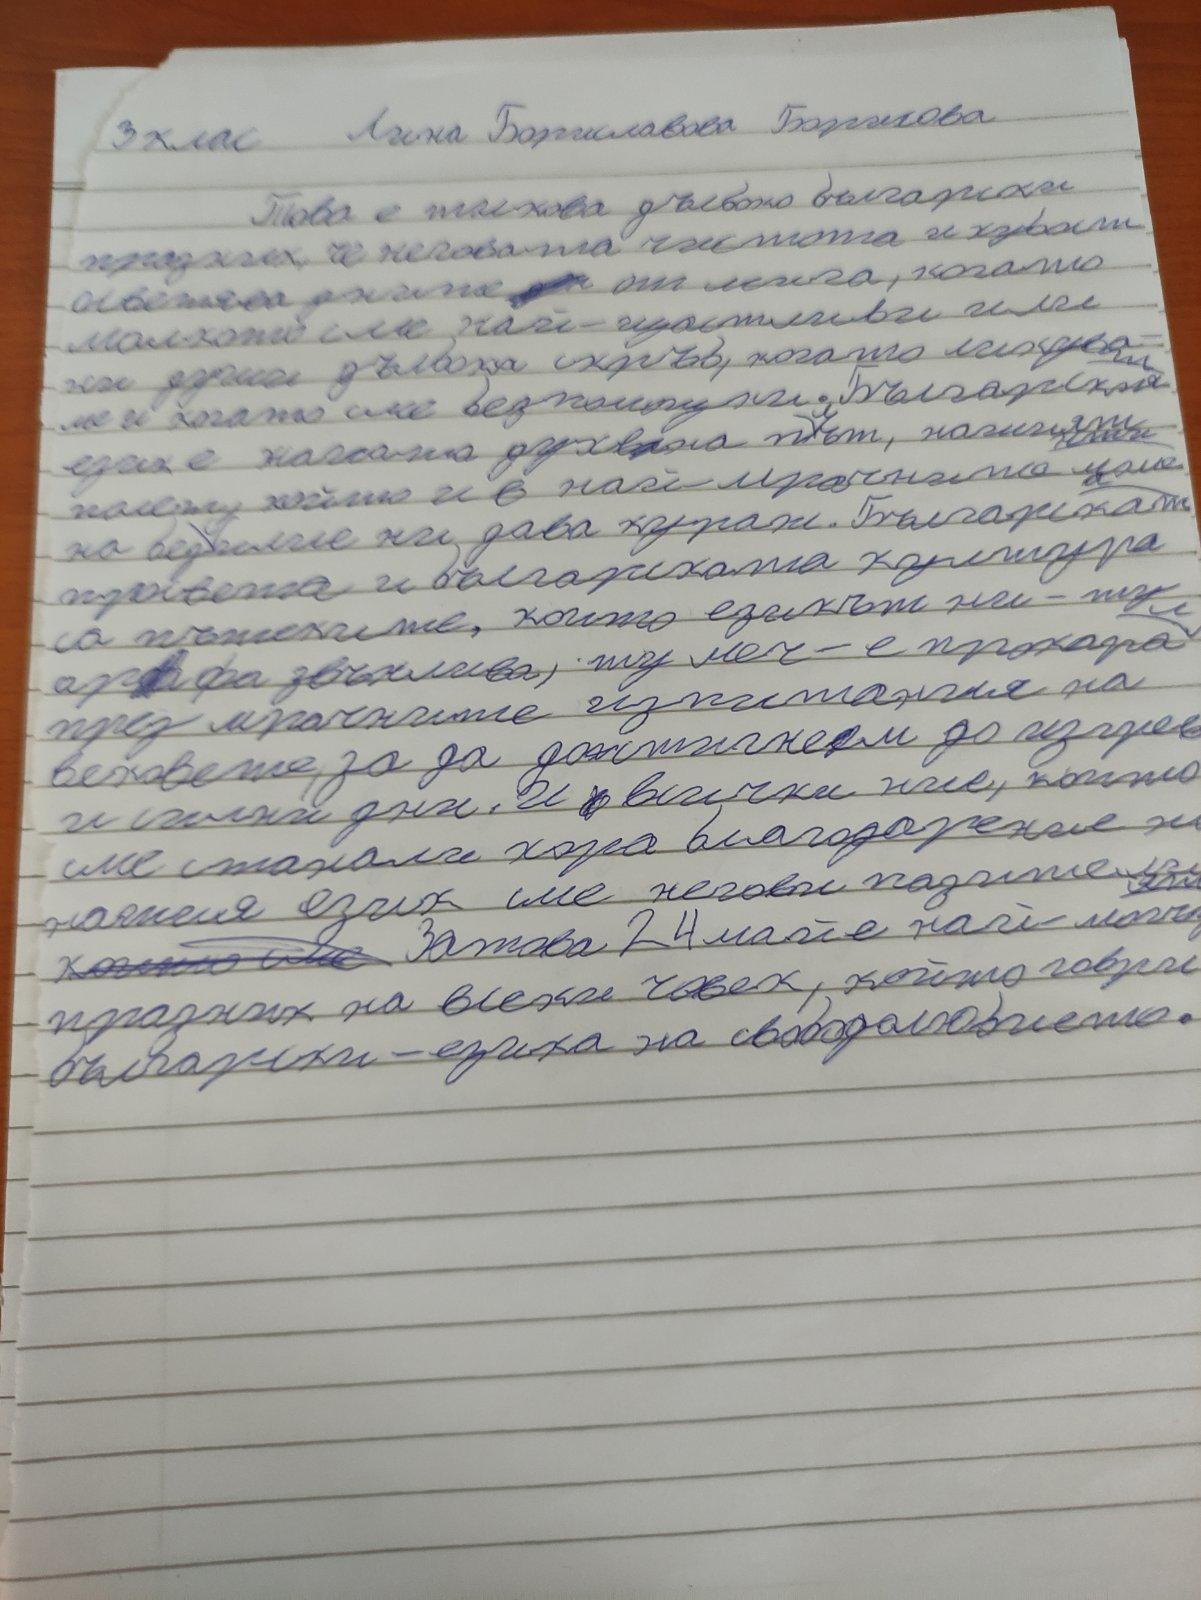 3 клас Лина Бориславова Борисова
Това е толкова дълбоко български
празник, че неговата чистота и хубост
осветява дните от мига, когато
малкото сме най-щастливи или
ни души дълбока скръб, когато ликува-
ме и когато сме безпомощни. Българският
език е нашата духовна път, начинът
помежду който и в най-мрачните
на безсилие ни дава кураж. Българската
просвета и българската култура
са пътеките, които езикът ни - ту
арфа звънлива, ту меч - е прокарал
през мрачните изпитания на
вековете, за да достигнем до изгрев
и силни дни. И всички ние, които
сме станали хора благодарение на
нашия език сме негови пазители
Затова 24 май е най-
празник на всеки човек, който говори
български - езика на свободолюбието.